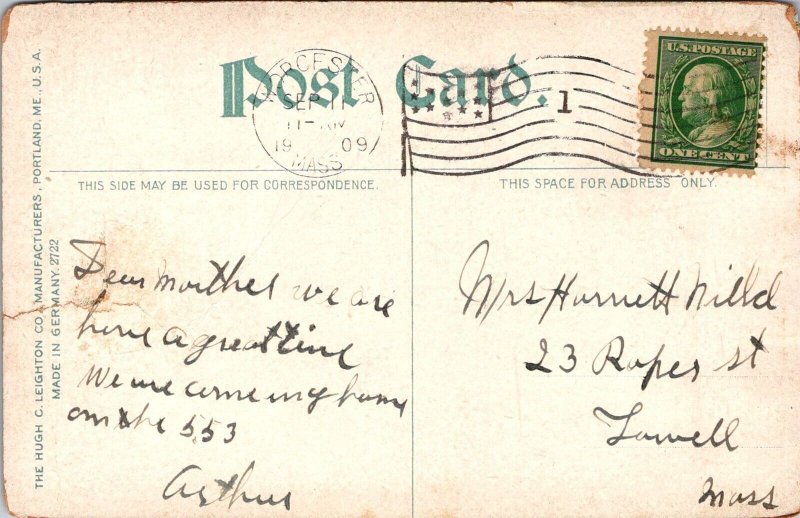 Post Card.
WORCESTER
SEP 11
11-AM
1909
MASS
1
U.S. POSTAGE
ONE CENT
THIS SIDE MAY BE USED FOR CORRESPONDENCE.
THIS SPACE FOR ADDRESS ONLY.
THE HUGH C. LEIGHTON CO., MANUFACTURERS, PORTLAND, ME., U.S.A.
MADE IN GERMANY. 2722
Dear Morther we are
have a great time
We are comeing home
om the 553
Arthur
Mrs Harnett
23 Roper st
Lowell
Mass